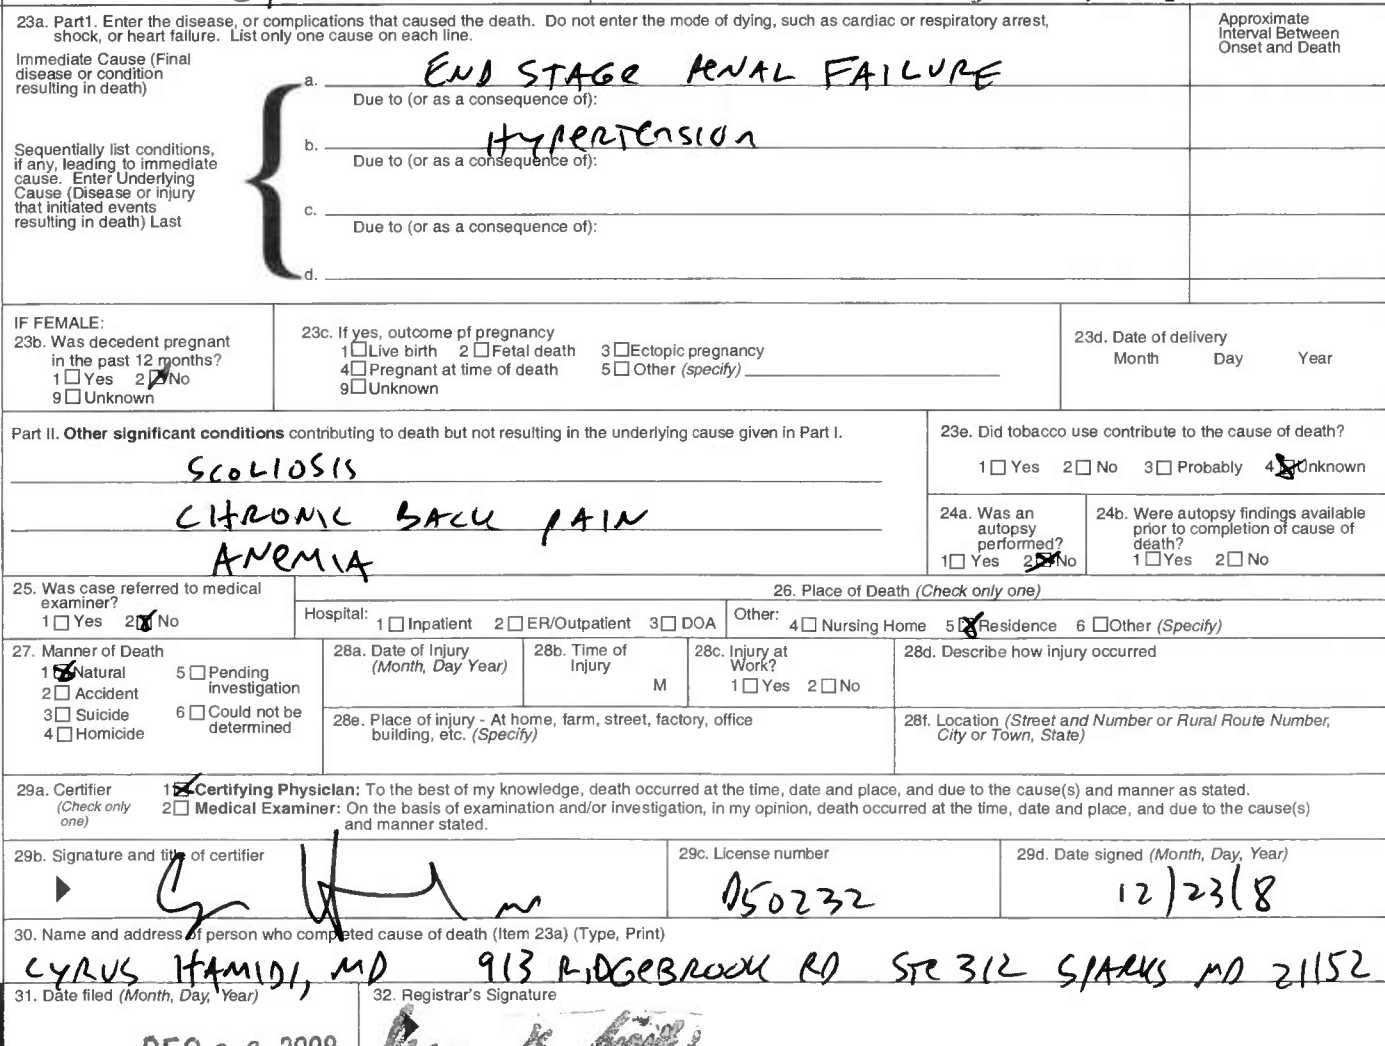 23a. Part1. Enter the disease, or complications that caused the death. Do not enter the mode of dying, such as cardiac or respiratory arrest,
shock, or heart failure. List only one cause on each line.
Approximate
Interval Between
Onset and Death
Immediate Cause (Final
disease or condition
resulting in death)
a. END STAGE RENAL FAILURE
Due to (or as a consequence of):
Sequentially list conditions,
if any, leading to immediate
cause. Enter Underlying
Cause (Disease or injury
that initiated events
resulting in death) Last
b. Hypertension
Due to (or as a consequence of):
c.
Due to (or as a consequence of):
d.
IF FEMALE:
23b. Was decedent pregnant
in the past 12 months?
1 Yes 2 No
9 Unknown
23c. If yes, outcome pf pregnancy
1 Live birth 2 Fetal death 3 Ectopic pregnancy
4 Pregnant at time of death 5 Other (specify)
9 Unknown
23d. Date of delivery
Month Day Year
Part II. Other significant conditions contributing to death but not resulting in the underlying cause given in Part I.
SCOLIOSIS
CHRONIC BACK PAIN
ANEMIA
23e. Did tobacco use contribute to the cause of death?
1 Yes 2 No 3 Probably 4 Unknown
24a. Was an
autopsy
performed?
1 Yes 2 No
24b. Were autopsy findings available
prior to completion of cause of
death?
1 Yes 2 No
25. Was case referred to medical
examiner?
1 Yes 2 No
26. Place of Death (Check only one)
Hospital: 1 Inpatient 2 ER/Outpatient 3 DOA Other: 4 Nursing Home 5 Residence 6 Other (Specify)
27. Manner of Death
1 Natural 5 Pending
investigation
2 Accident
3 Suicide 6 Could not be
determined
4 Homicide
28a. Date of Injury
(Month, Day Year)
28b. Time of
Injury
M
28c. Injury at
Work?
1 Yes 2 No
28d. Describe how injury occurred
28e. Place of injury - At home, farm, street, factory, office
building, etc. (Specify)
28f. Location (Street and Number or Rural Route Number,
City or Town, State)
29a. Certifier
(Check only
one)
1 Certifying Physician: To the best of my knowledge, death occurred at the time, date and place, and due to the cause(s) and manner as stated.
2 Medical Examiner: On the basis of examination and/or investigation, in my opinion, death occurred at the time, date and place, and due to the cause(s)
and manner stated.
29b. Signature and title of certifier
29c. License number
D50232
29d. Date signed (Month, Day, Year)
12/23/8
30. Name and address of person who completed cause of death (Item 23a) (Type, Print)
CYRUS HAMIDI, MD 913 RIDGEBROOK RD STE 312 SPARKS MD 21152
31. Date filed (Month, Day, Year)
32. Registrar's Signature